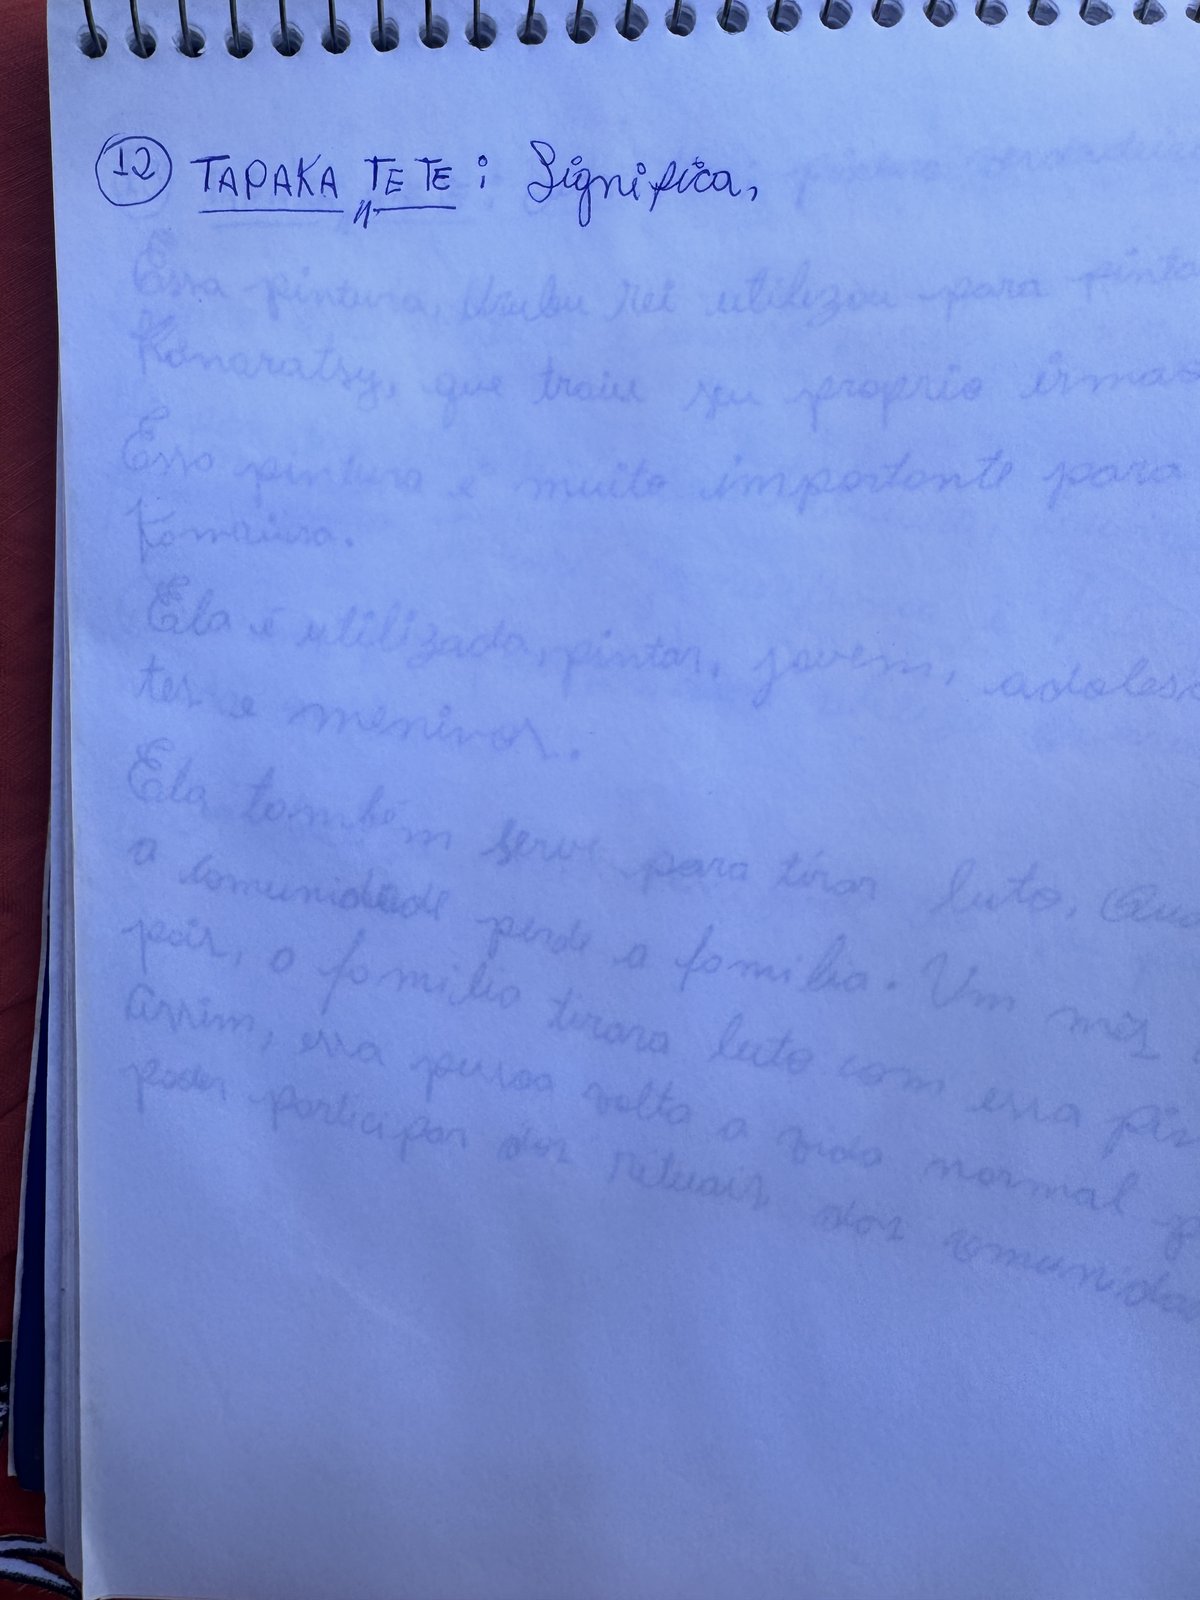 12 TAPAKA TE TE : Significa,
Essa pintura, Urubu rei utilizou para
que traiu seu proprio
Essa pintura é muito importante para
Ela é utilizada, pintar, jovem,
tes e meninos.
Ela também serve para tirar luto,
a comunidade perde a familia. Um mês
a familia tirara luto com essa
Assim, essa pessoa volta a vida normal
poder participar dos rituais das